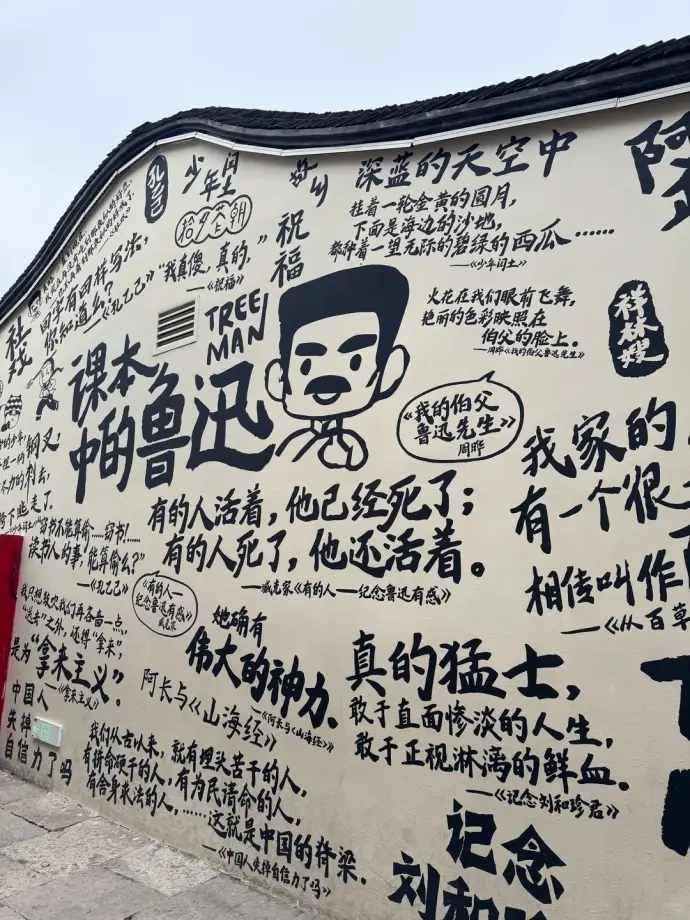 孔乙己
少年闰土
拾夕朝
故乡
祝福
“我真傻，真的，”
——《祝福》
回字有四样写法，
你知道么？
——《孔乙己》
社戏
TREE
MAN
课本
中的鲁迅
深蓝的天空中
挂着一轮金黄的圆月，
下面是海边的沙地，
都种着一望无际的碧绿的西瓜……
——《少年闰土》
阿
火花在我们眼前飞舞，
艳丽的色彩映照在
伯父的脸上。
——周晔《我的伯父鲁迅先生》
祥林嫂
《我的伯父
鲁迅先生》
周晔
我家的
有一个很
相传叫作
——《从百草
钢叉
刺去，
逃走了
有的人活着，他已经死了；
有的人死了，他还活着。
——臧克家《有的人——纪念鲁迅有感》
“窃书不能算偷……窃书！……
读书人的事，能算偷么？”
——《孔乙己》
《有的人——
纪念鲁迅有感》
臧克家
我只想鼓吹我们再吝啬一点，
“送去”之外，还得“拿来”，
是为“拿来主义”。
——《拿来主义》
她确有
伟大的神力。
——《阿长与《山海经》》
阿长与《山海经》
真的猛士，
敢于直面惨淡的人生，
敢于正视淋漓的鲜血。
——《记念刘和珍君》
中国人
失掉
自信力了吗
我们从古以来，就有埋头苦干的人，
有拼命硬干的人，有为民请命的人，
有舍身求法的人，……这就是中国的脊梁。
——《中国人失掉自信力了吗》
记念
刘和